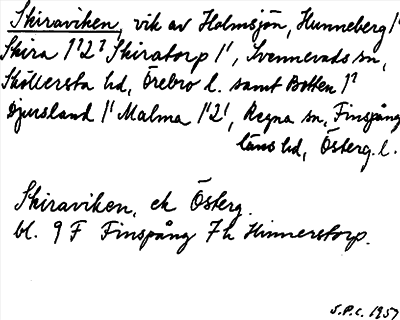 Skiraviken, vik av Holmsjön, Hunneberg 1¹
Skira 1¹2² Skiratorp 1¹, Svennevads sn,
Sköllersta hd, Örebro l. samt Botten 1²
Djursland 1¹ Malma 1¹2¹, Regna sn, Finspång
läns hd, Österg. l.
Skiraviken, ek Österg.
bl. 9 F Finspång 7 h Hinnerstorp.
S.P.C. 1957